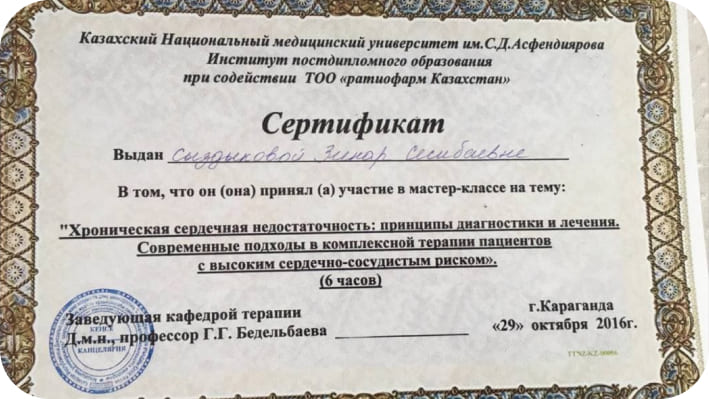 Казахский Национальный медицинский университет им.С.Д.Асфендиярова
Институт постдипломного образования
при содействии ТОО «ратиофарм Казахстан»
Сертификат
Выдан Сыздыковой Зинар Сесибаевне
В том, что он (она) принял (а) участие в мастер-классе на тему:
"Хроническая сердечная недостаточность: принципы диагностики и лечения.
Современные подходы в комплексной терапии пациентов
с высоким сердечно-сосудистым риском».
(6 часов)
Заведующая кафедрой терапии
Д.м.н., профессор Г.Г. Бедельбаева
г.Караганда
«29» октября 2016г.
КЕҢСЕ
КАНЦЕЛЯРИЯ